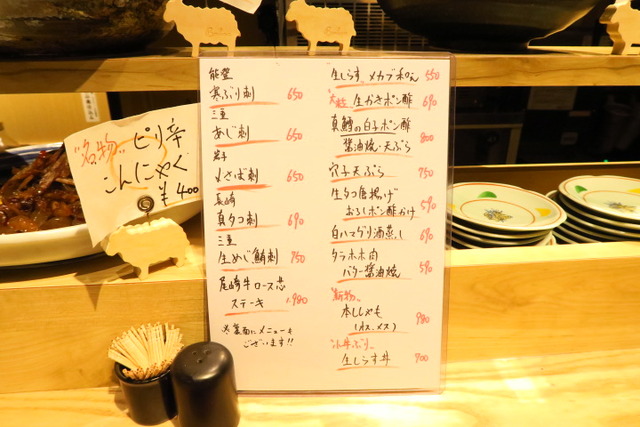 "名物" ピリ辛
こんにゃく
¥400
能登
寒ぶり刺 650
三重
あじ刺 650
岩手
〆さば刺 650
長崎
真タコ刺 690
三重
生めじ鮪刺 750
尾崎牛ロース芯
ステーキ 1,980
裏面にメニューも
ございます!!
生しらす メカブ和え 550
生かきポン酢 690
真鱈の白子ポン酢
醤油焼・天ぷら 800
穴子天ぷら 750
生タコ唐揚げ
おろしポン酢かけ 590
白ハマグリ酒蒸し 690
タラホホ肉
バター醤油焼 590
"新物"
本ししゃも
(オス、メス) 980
生しらす丼 700